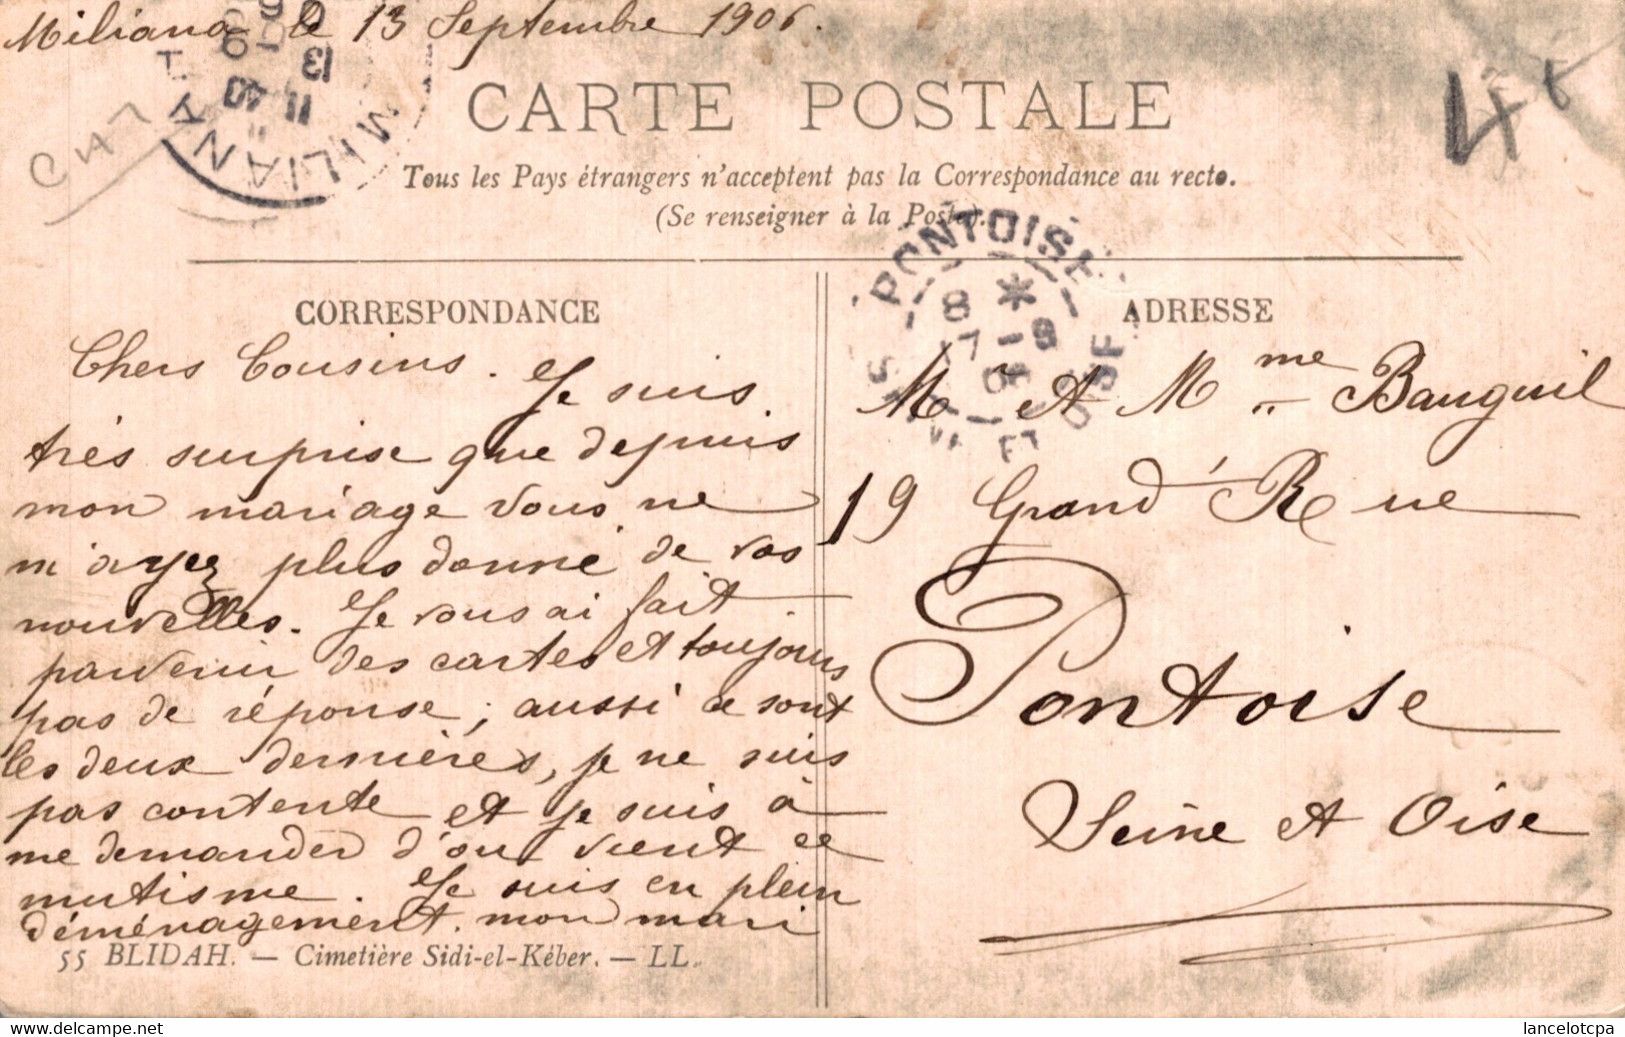 Miliana le 13 Septembre 1906.
MILIANA
11 40
13
CARTE POSTALE
Tous les Pays étrangers n'acceptent pas la Correspondance au recto.
(Se renseigner à la Poste).
PONTOISE
CORRESPONDANCE
Chers Cousins. Je suis
très surprise que depuis
mon mariage vous ne
m'ayez plus donné de vos
nouvelles. Je vous ai fait
parvenir des cartes et toujours
pas de réponse, aussi ce sont
les deux dernières, je ne suis
pas contente et je suis à
me demander d'ou vient ce
mutisme. Je suis en plein
déménagement. mon mari
55 BLIDAH. — Cimetière Sidi-el-Kéber. — LL.
ADRESSE
Mr et Mme Bauguil
19 Grand' Rue
Pontoise
Seine et Oise
www.delcampe.net
lancelotcpa